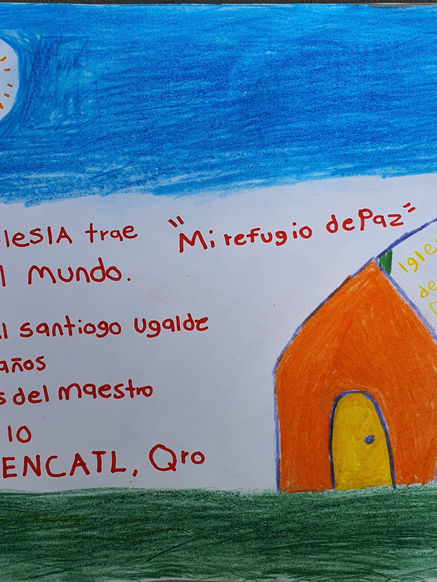 lesIA trae
l mundo.
"Mi refugio de Paz"
l santiago ugalde
años
s del maestro
10
ENCATL, Qro
Igles
de